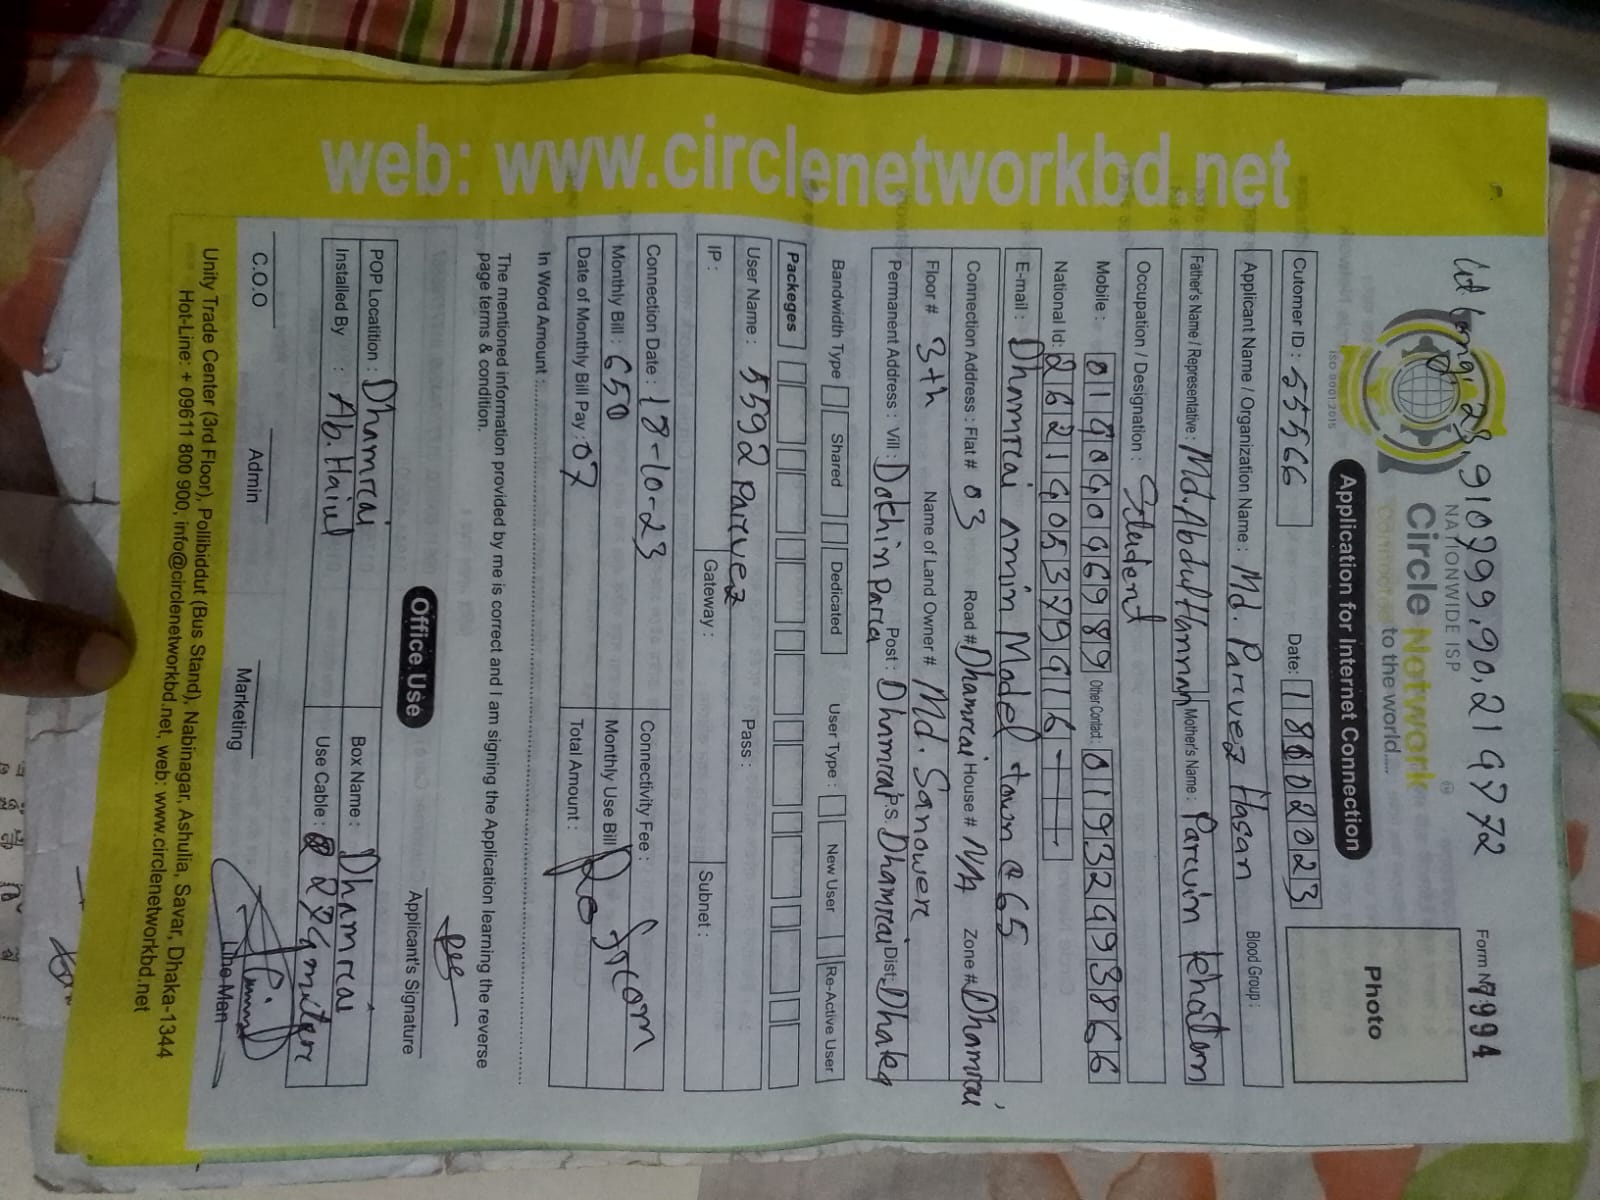 web: www.circlenetworkbd.net
Lat Long, 23,9109799,90,219772
NATIONWIDE ISP
Circle Network
Connected to the world.....
ISO 9001:2015
Form Nº 7994
Application for Internet Connection
Photo
Cutomer ID : 55566
Date: 18 2023
Applicant Name / Organization Name : Md. Parvez Hasan
Blood Group :
Father's Name / Representative : Md, Abdul Hannan
Mother's Name : Parvin Khatun
Occupation / Designation : Student
Mobile :
Other Contact:
National Id:
E-mail : Dhamrai Model town
Connection Address : Flat # 03
Road # Dhamrai
House # N/A
Zone # Dhamrai
Floor # 3th
Name of Land Owner # Md. Sanowere
Permanent Address : Vill : Dokhinpara
Post : Dhamrai
P.S. Dhamrai
Dist: Dhaka
Bandwidth Type
Shared
Dedicated
User Type :
New User
Re-Active User
Packeges
User Name : 5592 Parvez
Pass :
IP :
Gateway :
Subnet :
Connection Date : 18-10-23
Connectivity Fee :
Monthly Bill : 650
Monthly Use Bill
Date of Monthly Bill Pay : 07
Total Amount :
In Word Amount :
The mentioned information provided by me is correct and I am signing the Application learning the reverse
page terms & condition.
Applicant's Signature
Office Use
POP Location : Dhamrai
Box Name : Dhamrai
Installed By :
Use Cable :
C.O.O
Admin
Marketing
Line Man
Unity Trade Center (3rd Floor), Pollibiddut (Bus Stand), Nabinagar, Ashulia, Savar, Dhaka-1344
Hot-Line: + 09611 800 900, info@circlenetworkbd.net, web: www.circlenetworkbd.net